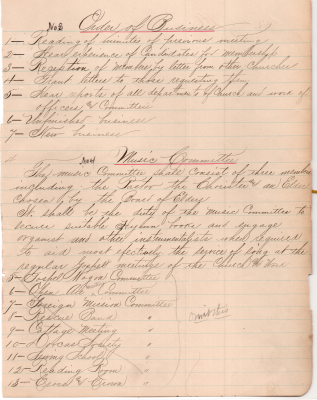 No 3 Order of Business
1 — Reading of minutes of previous meeting
2 — Hear experience of Candidates for membership
3 — Reception of members by letter from other Churches
4 — Grant letters to those requesting them
5 — Hear reports of all departments of Church and work of
officers & Committees
6 — Unfinished business
7 — New business
4 No 4 Music Committee
The music Committee shall consist of three members
including the Pastor the Chorister & an Elder
Chosen by the Board of Elders
It shall be the duty of the Music Committee to
secure suitable Hymn books and engage
organist and other instrumentalists when required
to aid most effectively the service of song at the
regular meetings of the Church
5 — Gospel Wagon Committee
6 — Open Air Committee
7 — Foreign Mission Committee
8 — Rescue Band "
9 — Cottage Meeting "
10 — Dorcas Society "
11 — Sunday School "
12 — Reading Room "
13 —